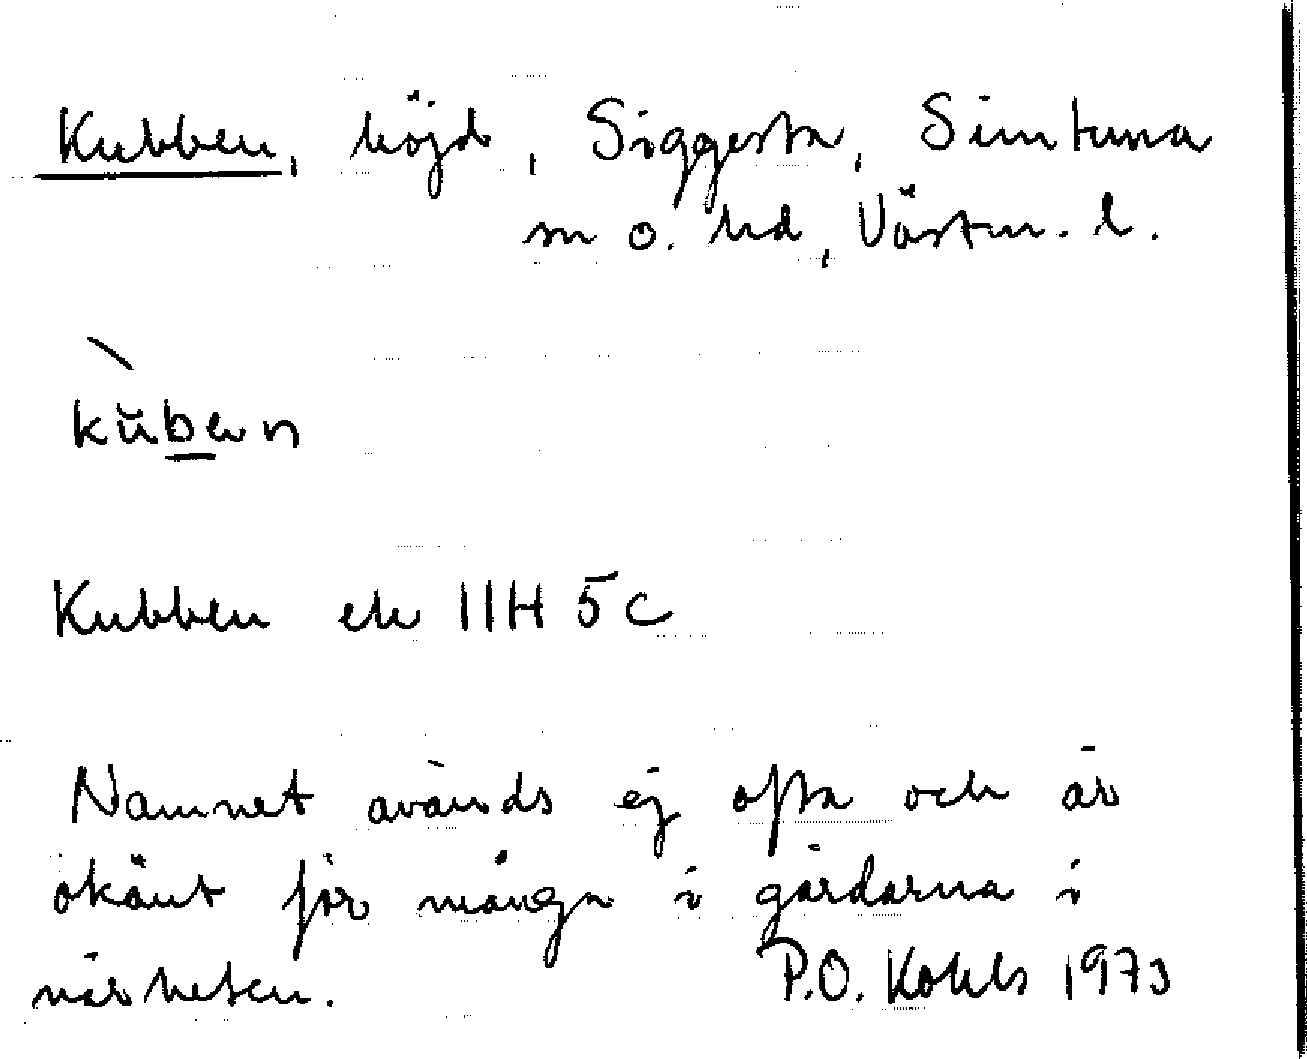 Kubben, höjd, Siggesta, Simtuna
sn o. hd, Västm. l.
Kubben ek 11H 5c
Namnet avänds ej ofta och är
okänt för många i gårdarna i
närheten. P.O. Kohls 1973